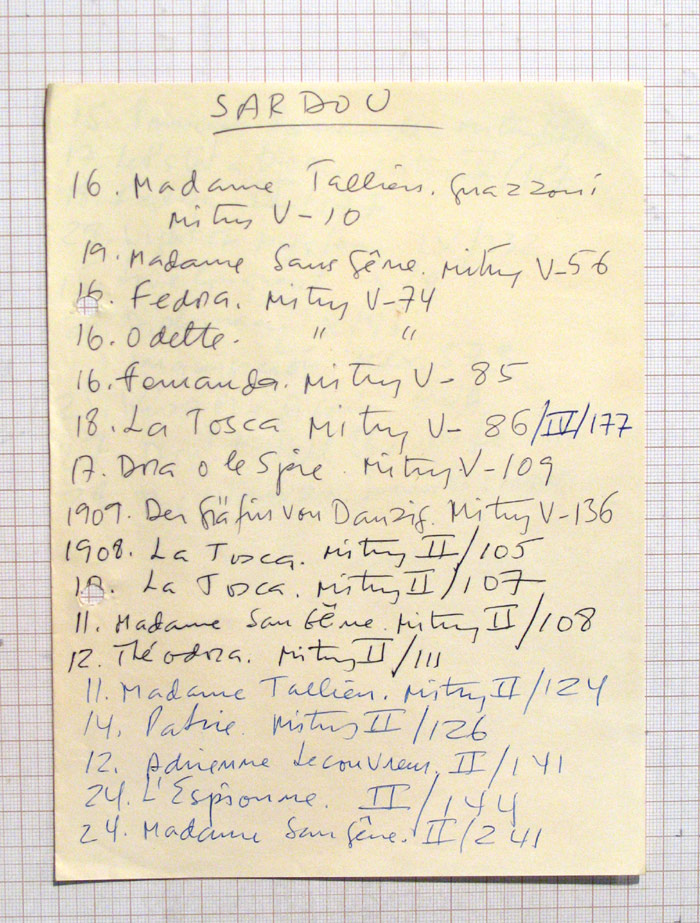 SARDOU
16. Madame Tallien. Guazzoni
Mitry V-10
19. Madame Sans Gêne. Mitry V-56
16. Fedora. Mitry V-74
16. Odette. " "
16. Fernanda. Mitry V-85
18. La Tosca Mitry V-86/IV/177
17. Dora o le Spie. Mitry V-109
1909. Der Gräfin von Danzig. Mitry V-136
1908. La Tosca. Mitry II/105
La Tosca. Mitry II/107
11. Madame San Gêne. Mitry II/108
12. Théodora. Mitry II/111
11. Madame Tallien. Mitry II/124
14. Patrie. Mitry II/126
12. Adrienne Lecouvreur. II/141
24. L'Espionne. II/144
24. Madame San Gêne. II/241